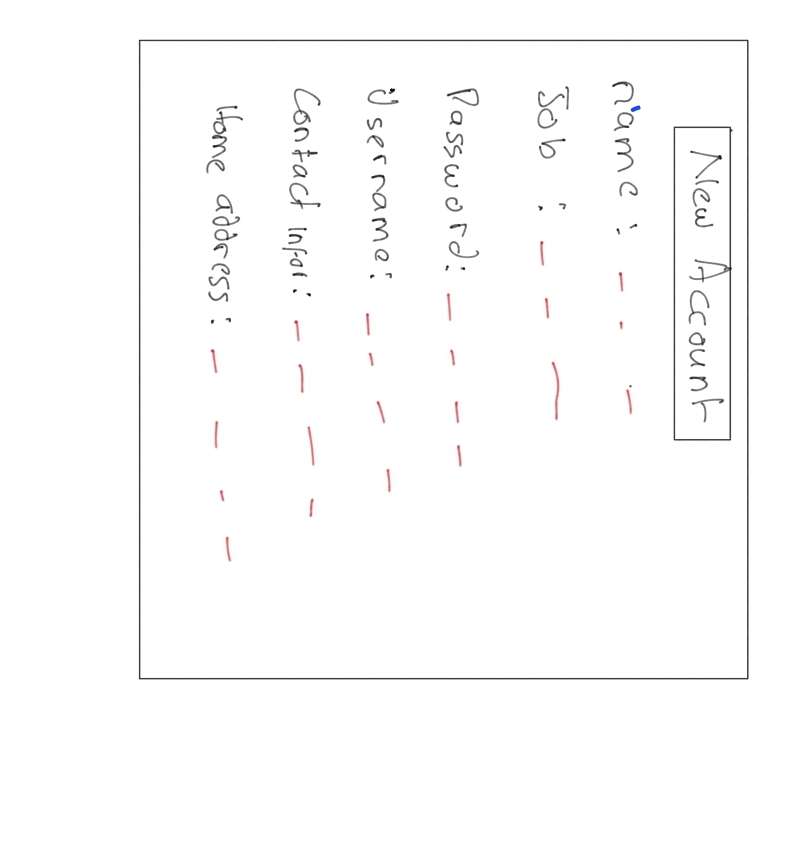 New Account
name:
Job :
Password:
Username:
Contact infor:
Home address: